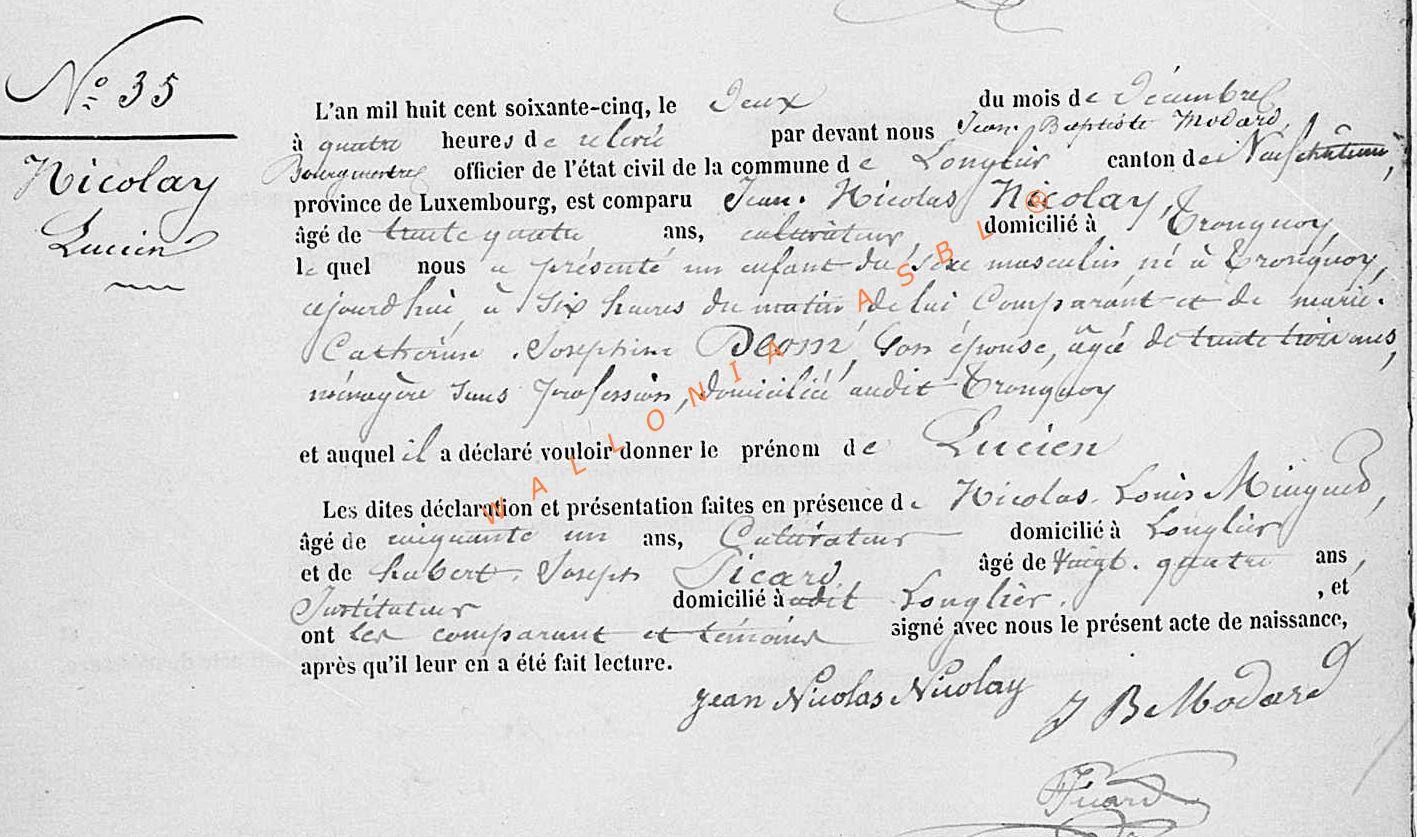 N° 35
Nicolay
Lucien
L'an mil huit cent soixante-cinq, le Deux du mois de Décembre
à quatre heures de relevée par devant nous Jean-Baptiste Modard,
Bourgmestre officier de l'état civil de la commune de Longlier canton de Neufchâteau,
province de Luxembourg, est comparu Jean-Nicolas Nicolay,
âgé de trente quatre ans, cultivateur, domicilié à Tronquoy,
le quel nous a présenté un enfant du sexe masculin né à Tronquoy,
aujourd'hui, à six heures du matin, de lui Comparant et de marie-
Catherine Josephine son épouse, âgée de trente trois ans,
ménagère sans profession, domiciliée audit Tronquoy
et auquel il a déclaré vouloir donner le prénom de Lucien
Les dites déclaration et présentation faites en présence de Nicolas-Louis
âgé de cinquante un ans, Cultivateur domicilié à Longlier
et de hubert-Joseph Picard, âgé de Vingt-quatre ans,
Instituteur domicilié à udit Longlier. , et
ont les comparant et témoins signé avec nous le présent acte de naissance,
après qu'il leur en a été fait lecture.
jean Nicolas Nicolay
J B Modard
Picard
WALLONIA ASBL ®